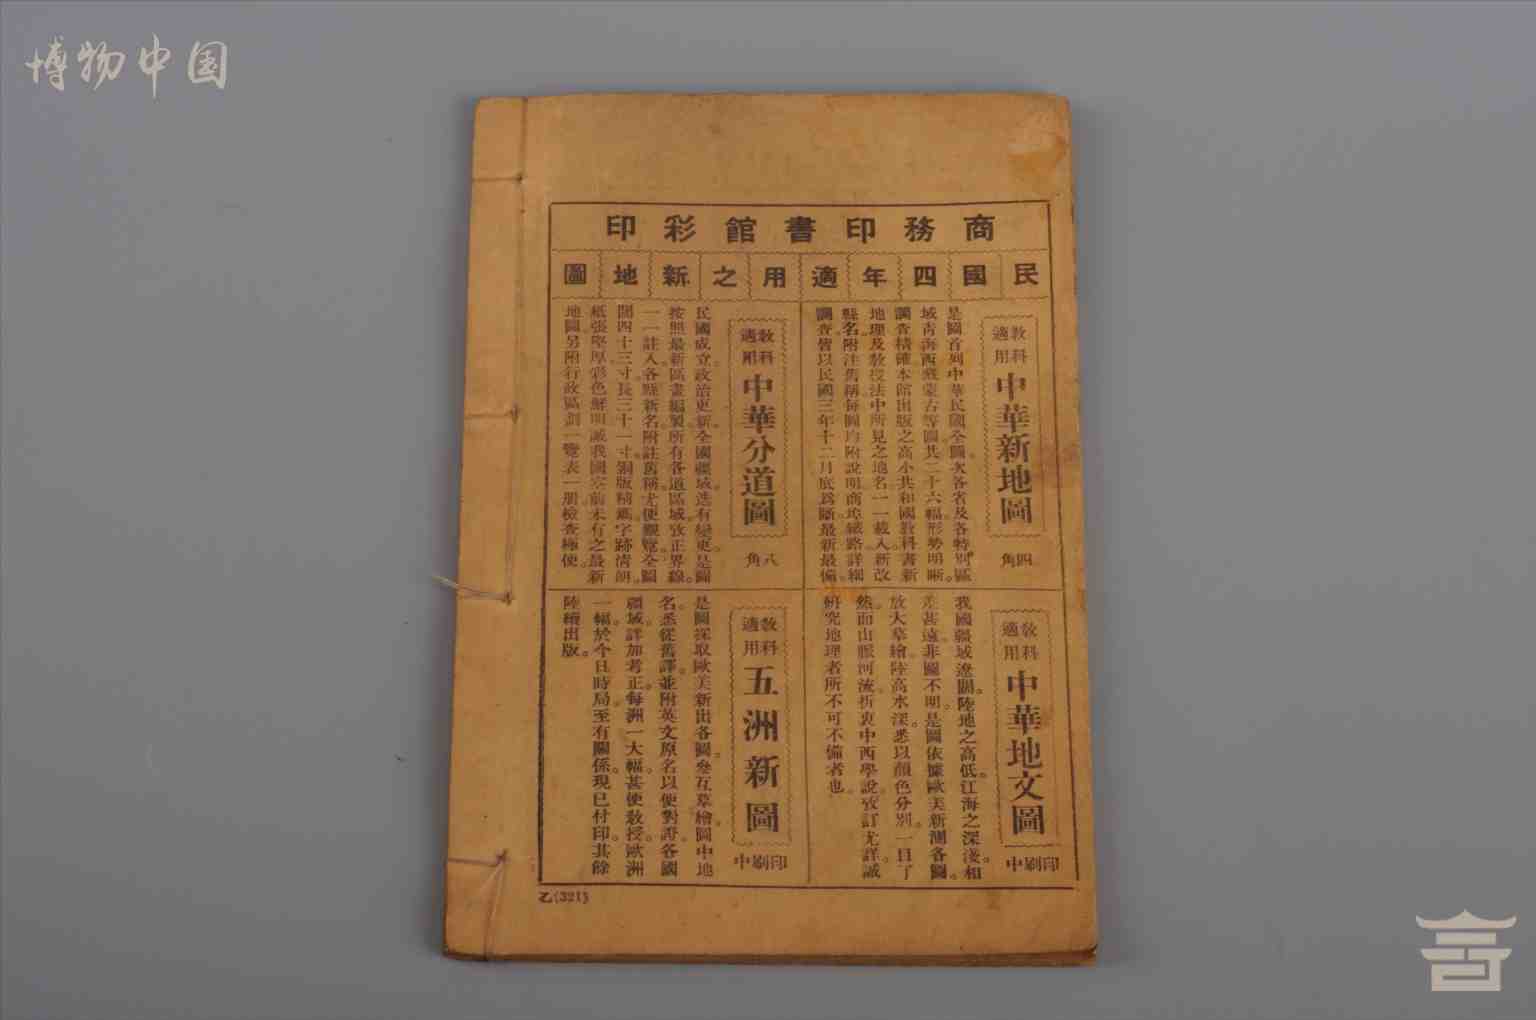 博物中国
商務印書館彩印
民國四年適用之新地圖
教科適用
中華新地圖
四角
是圖首列中華民國全圖。次各省及各特別區
域青海西藏蒙古等圖。共二十六幅。形勢明晰。
調查精確。本館出版之高小共和國教科書新
地理及教授法中所見之地名。一一載入。新改
縣名。附注舊稱。每圖均附說明。商埠鐵路。詳細
調查。皆以民國三年十二月底爲斷。最新最備。
教科適用
中華分道圖
八角
民國成立。政治更新。全國疆域。迭有變更。是圖
按照最新區畫編製。所有各道區域。攷正界線。
一一註入。各縣新名。附註舊稱。尤便觀覽。全圖
闊四十三寸。長三十一寸。銅版精鐫。字跡清朗。
紙張堅厚。彩色鮮明。誠我國空前未有之最新
地圖。另附行政區劃一覽表一册。檢查極便。
教科適用
中華地文圖
印刷中
我國疆域遼闊。陸地之高低。江海之深淺。相
差甚遠。非圖不明。是圖依據歐美新測各圖。
放大摹繪。陸高水深。悉以顏色分別。一目了
然。而山脈河流。折衷中西學說。攷訂尤詳。誠
研究地理者所不可不備者也。
教科適用
五洲新圖
印刷中
是圖採取歐美新出各圖。叄互摹繪。圖中地
名。悉從舊譯。並附英文原名。以便對證。各國
疆域。詳加考正。每洲一大幅。甚便教授。歐洲
一幅。於今日時局。至有關係。現已付印。其餘
陸續出版。
乙(321)